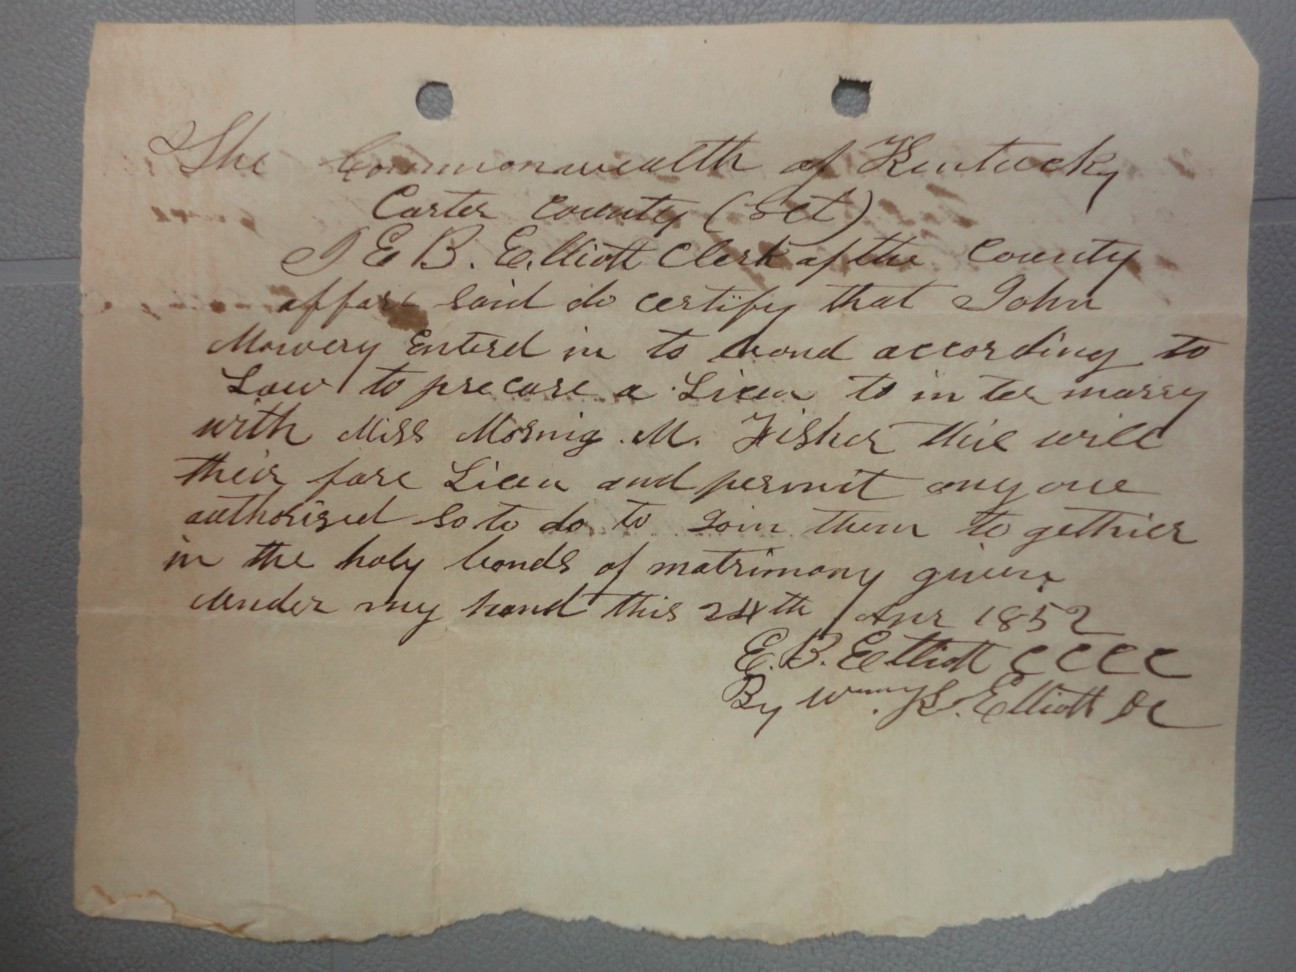 The Commonwealth of Kentucky
Carter County (Sct)
I E B. Elliott Clerk of the County
affare said do certify that John
Mowery Enterd in to bond according to
Law to precure a Licen to in ter marry
with Miss Mornig M. Fisher this will
their fore Licen and permit any one
authorised so to do to Join them to gether
in the holy bonds of matrimony given
Under my hand this 24th Apr 1852
E. B. Elliott C C C C
By Wm S. Elliott DC